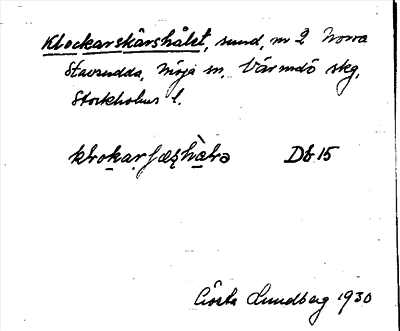 Klockarskärshålet, sund, nr 2 Norra
Stavsudda, Möja sn, Värmdö skg,
Stockholms l.
Db 15
Gösta Lundberg 1930